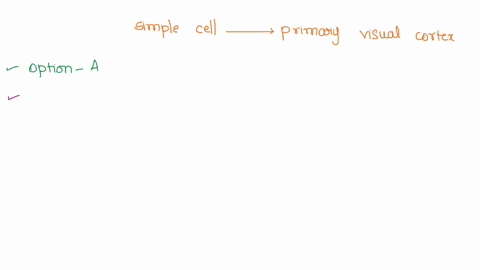 simple cell ⟶ primary visual cortex
✓ option - A
✓